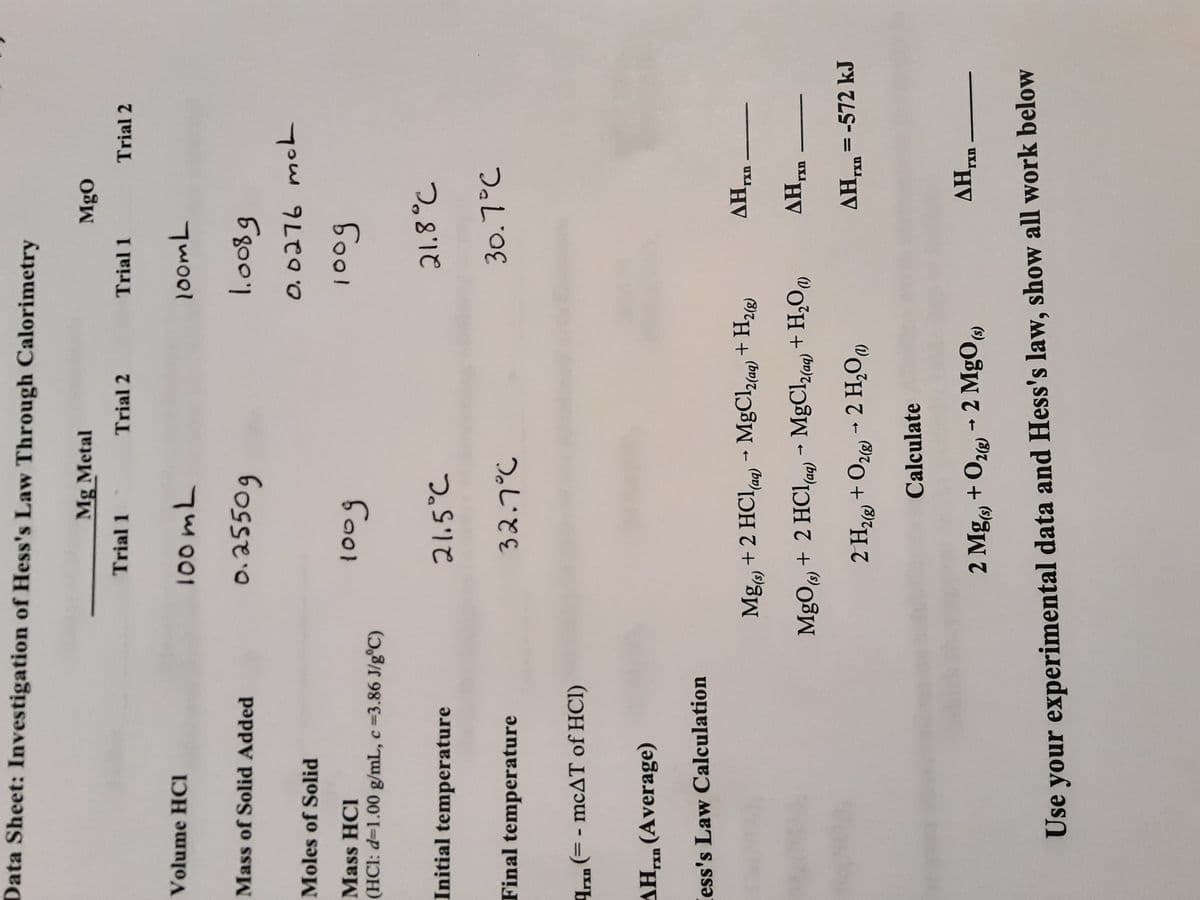 Data Sheet: Investigation of Hess's Law Through Calorimetry
Mg Metal MgO
Trial 1 Trial 2 Trial 1 Trial 2
Volume HCl 100 mL 100mL
Mass of Solid Added 0.2550g 1.008g
Moles of Solid 0.0276 moL
Mass HCl 100g 100g
(HCl: d=1.00 g/mL, c =3.86 J/g°C)
Initial temperature 21.5°C 21.8°C
Final temperature 32.7°C 30.7°C
qrxn (= - mcΔT of HCl)
ΔHrxn (Average)
ess's Law Calculation
Mg(s) + 2 HCl(aq) → MgCl2(aq) + H2(g) ΔHrxn ____
MgO(s) + 2 HCl(aq) → MgCl2(aq) + H2O(l) ΔHrxn ____
2 H2(g) + O2(g) → 2 H2O(l) ΔHrxn = -572 kJ
Calculate
2 Mg(s) + O2(g) → 2 MgO(s) ΔHrxn ____
Use your experimental data and Hess's law, show all work below